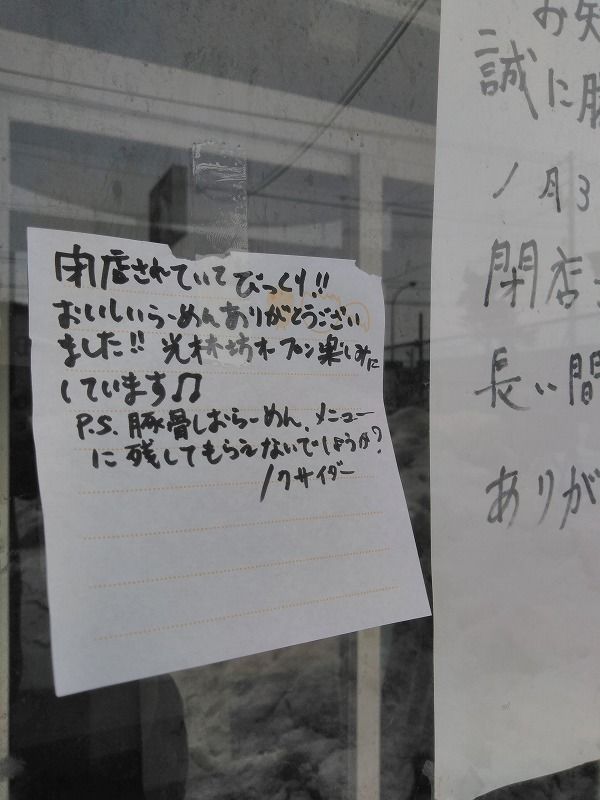 閉店されていてびっくり!!
おいしいらーめんありがとうござい
ました!! 光林坊オープン楽しみに
しています♫
P.S. 豚骨しおらーめん、メニュー
に残してもらえないでしょうか?
ノクサイダー
お知
誠に
1月3
閉店
長い間
ありが